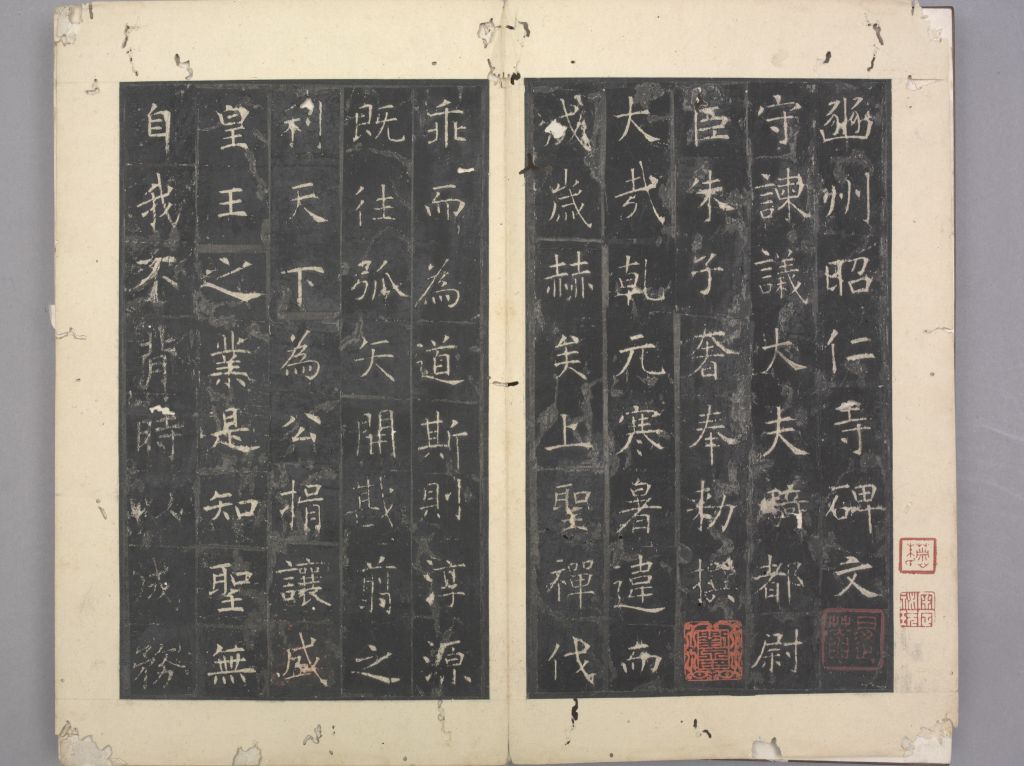 豳州昭仁寺碑文
守諫議大夫騎都尉
臣朱子奢奉勑撰
大哉乾元寒暑違而
成歲赫矣上聖禪代
乖而為道斯則淳源
既往弧矢開戡翦之
利天下為公揖讓
皇王之業是知聖無
自我不背時以務